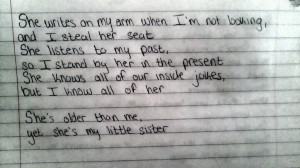 She writes on my arm when I'm not looking,
and I steal her seat
She listens to my past,
so I stand by her in the present
She knows all of our inside jokes,
but I know all of her
She's older than me,
yet she's my little sister